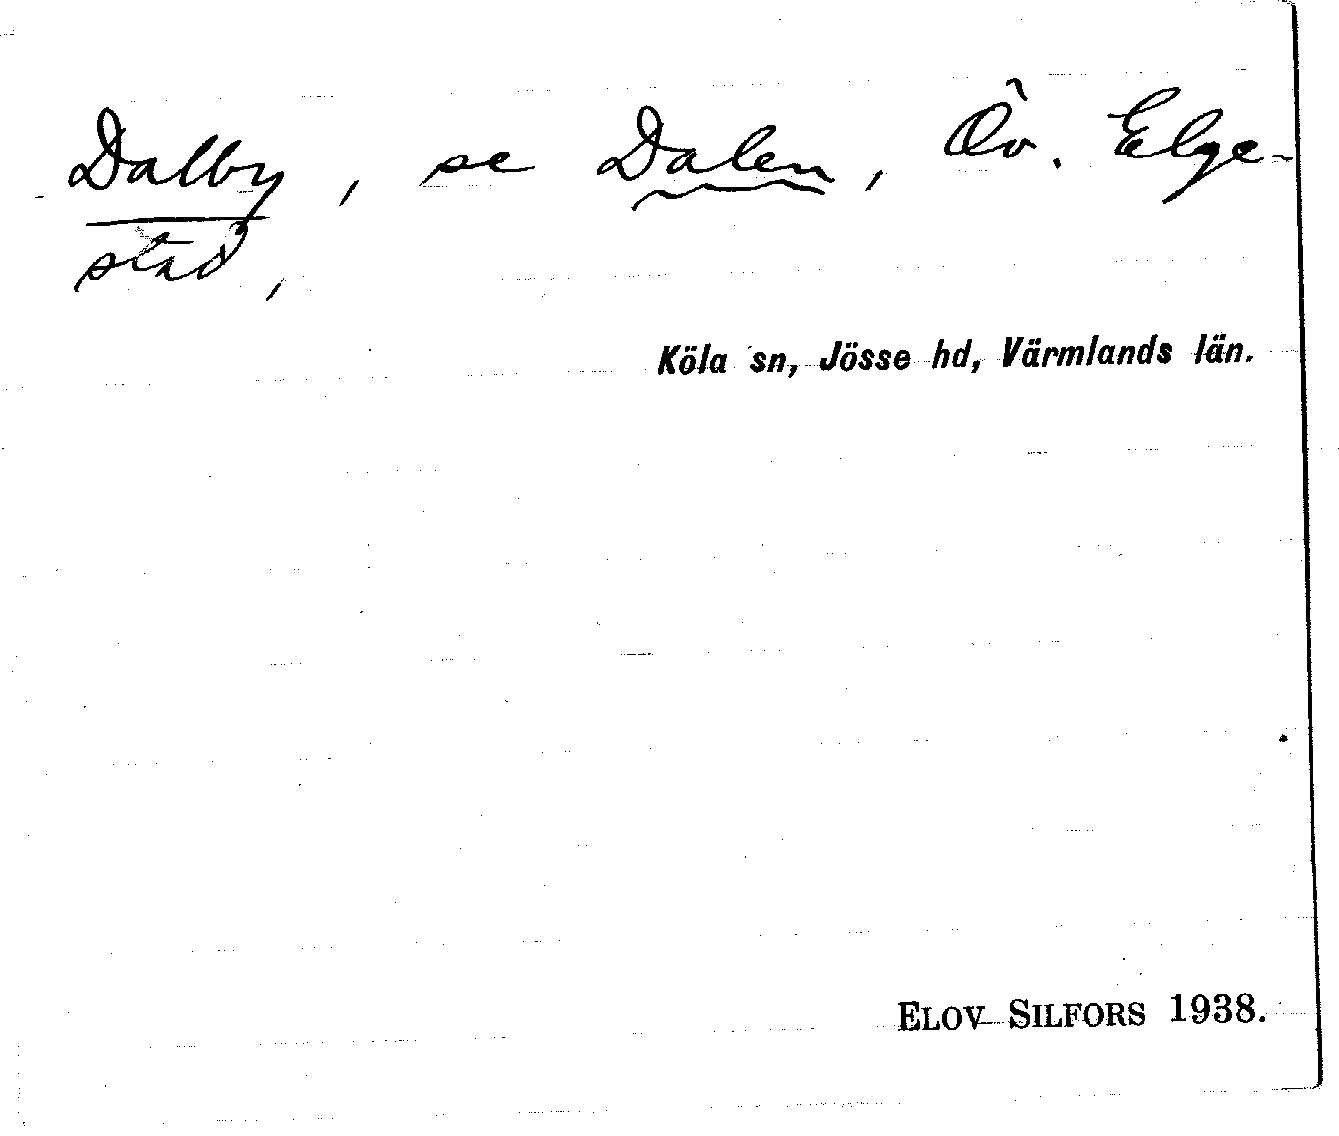 Dalby, se Dalen, Öv. Elge-
stad,
Köla sn, Jösse hd, Värmlands län.
ELOV SILFORS 1938.